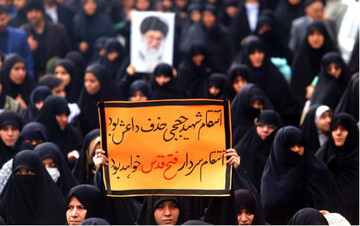 انتقام شهید حججی حذف داعش بود
انتقام سردار فتح قدس خواهد بود